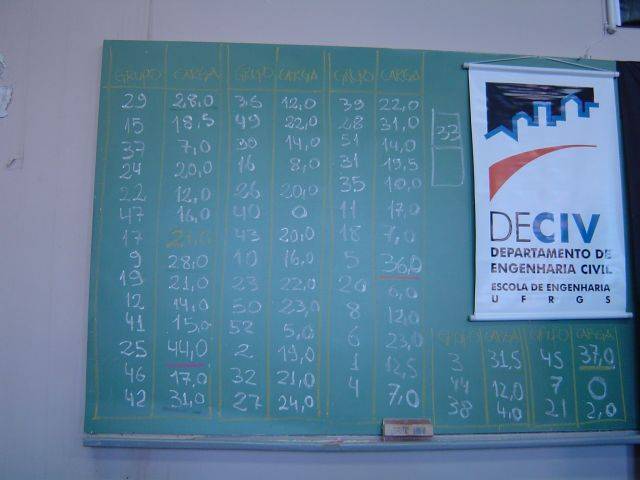 GRUPO CARGA GRUPO CARGA GRUPO CARGA
29 28,0 35 12,0 39 22,0
15 18,5 49 22,0 28 31,0
37 7,0 30 14,0 51 14,0
24 20,0 16 8,0 31 19,5
22 12,0 26 20,0 35 10,0
47 16,0 40 0 11 17,0
17 21,0 43 20,0 18 7,0
9 28,0 10 16,0 5 36,0
19 21,0 23 22,0 20 6,0
12 14,0 50 23,0 8 12,0
41 15,0 52 5,0 6 23,0
25 44,0 2 19,0 1 12,5
46 17,0 32 21,0 4 7,0
42 31,0 27 24,0
33
DECIV
DEPARTAMENTO DE
ENGENHARIA CIVIL
ESCOLA DE ENGENHARIA
UFRGS
GRUPO CARGA GRUPO CARGA
3 31,5 45 37,0
44 12,0 7 0
38 4,0 21 2,0